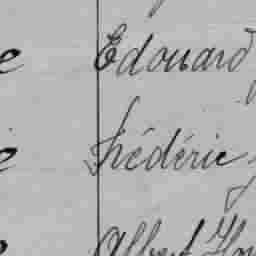 Edouard
Frédéric
Albert